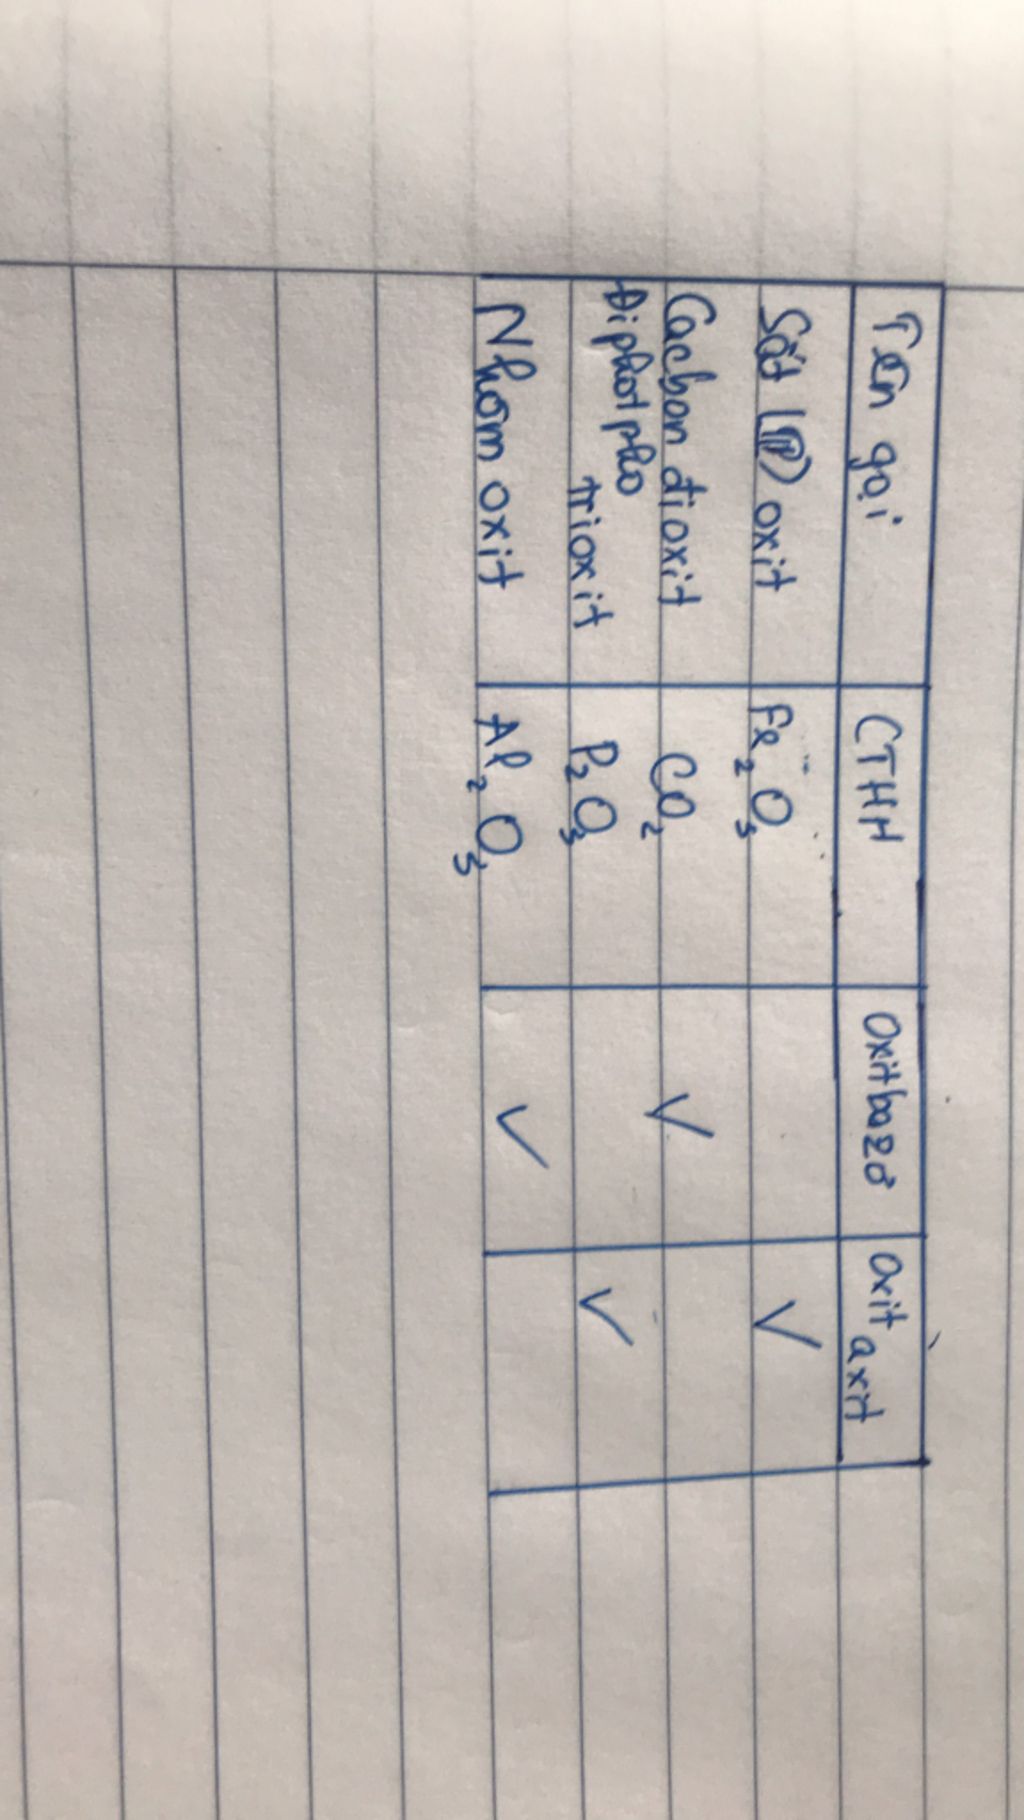 Tên gọi CTHH Oxitbazơ Oxit axit
Sắt () oxit Fe2O3 ✓
Cacbon đioxit CO2 ✓
Điphotpho trioxit P2O3 ✓
Nhôm oxit Al2O3 ✓